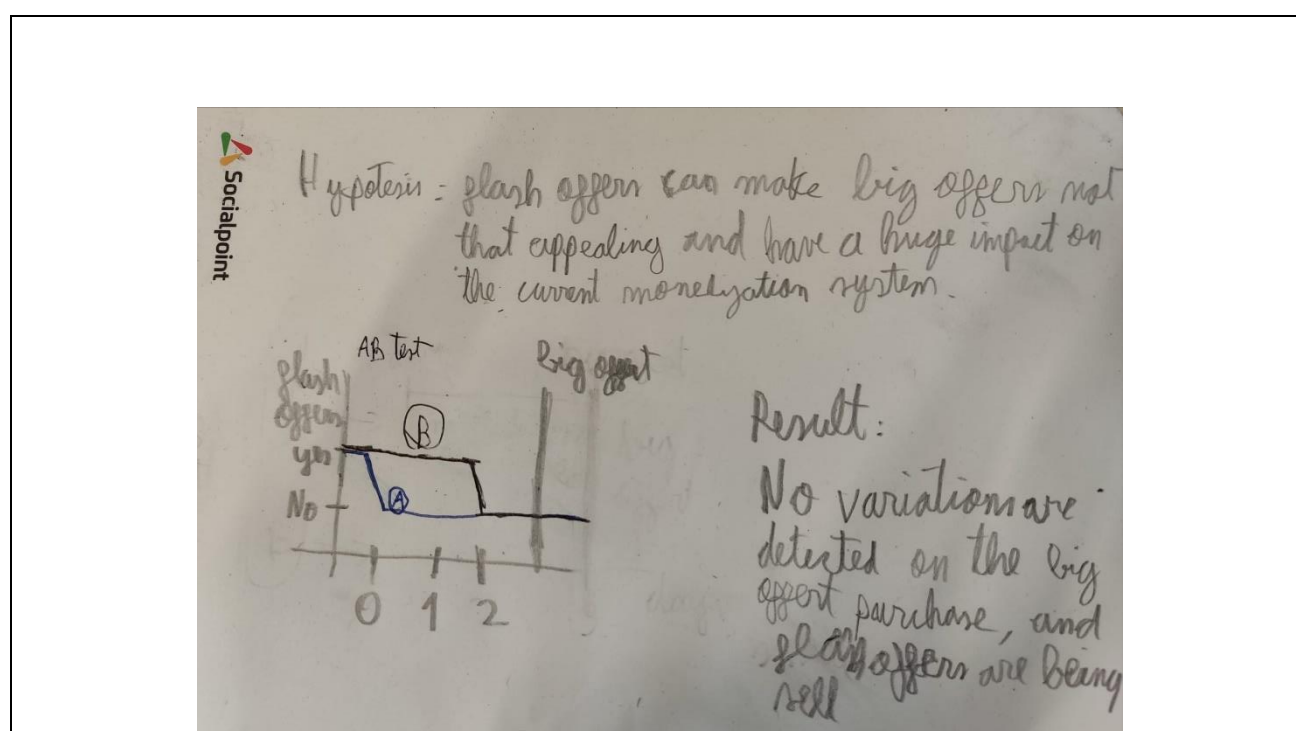 Socialpoint
Hypotesis = flash offers can make big offers not
that appealing and have a huge impact on
the current monetyzation system.
AB test
flash
offers
yes
No
B
A
big offert
0 1 2
Result:
No variation are
detected on the big
offert purchase, and
flash offers are being
sell